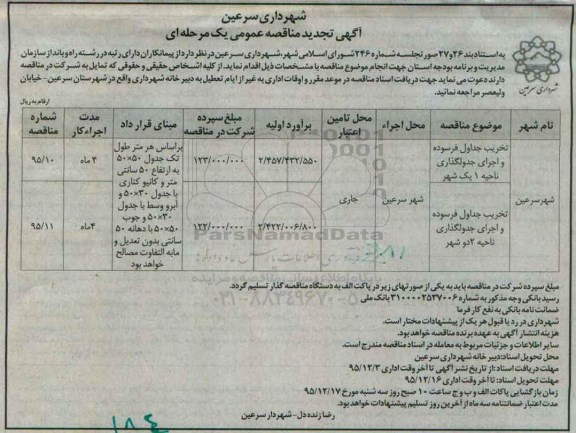 شهرداری سرعین
آگهی تجدید مناقصه عمومی یک مرحله ای
به استناد بند ۲۶و۲۷ صورتجلسه شماره ۲۴۶ شورای اسلامی شهر، شهرداری سرعین در نظر دارد از پیمانکاران دارای رتبه در رشته راه وباند از سازمان
مدیریت و برنامه بودجه استان جهت انجام موضوع مناقصه با مشخصات ذیل اقدام نماید. از کلیه اشخاص حقیقی و حقوقی که تمایل به شرکت در مناقصه
دارند دعوت می نماید جهت دریافت اسناد مناقصه در موعد مقرر و اوقات اداری به غیر از ایام تعطیل به دبیر خانه شهرداری واقع در شهرستان سرعین- خیابان
ولیعصر مراجعه نمایند.
شهرداری سرعین
ارقام به ریال
نام شهر | موضوع مناقصه | محل اجراء | محل تامین اعتبار | برآورد اولیه | مبلغ سپرده شرکت در مناقصه | مبنای قرار داد | مدت اجراء کار | شماره مناقصه
شهر سرعین | تخریب جداول فرسوده و اجرای جدولگذاری ناحیه ۱ یک شهر | شهر سرعین | جاری | ۲/۴۵۷/۴۳۲/۵۵۰ | ۱۲۳/۰۰۰/۰۰۰ | براساس هر متر طول تک جدول ۵۰×۵۰ به ارتفاع ۵۰ سانتی متر و کانیو کناری با جدول ۳۰×۵۰ و آبرو وسط با جدول ۳۰×۵۰ و جوب ۵۰×۵۰ با دهانه ۵۰ سانتی بدون تعدیل و مابه التفاوت مصالح خواهد بود | ۴ ماه | ۹۵/۱۰
تخریب جداول فرسوده و اجرای جدولگذاری ناحیه ۲ دو شهر | ۲/۴۲۲/۰۰۶/۸۰۰ | ۱۲۲/۰۰۰/۰۰۰ | ۴ ماه | ۹۵/۱۱
ParsNamadData
۰۲۱-۸۸۳۴۹۶۷۰-۵
مبلغ سپرده شرکت در مناقصه باید به یکی از صورتهای زیر در پاکت الف به دستگاه مناقصه گذار تسلیم گردد.
رسید بانکی وجه مذکور به شماره ۳۱۰۰۰۰۲۵۳۷۰۰۶ بانک ملی
ضمانت نامه بانکی به نفع کار فرما
شهرداری در رد یا قبول هر یک از پیشنهادات مختار است.
هزینه انتشار آگهی به عهده برنده مناقصه خواهد بود.
سایر اطلاعات و جزئیات مربوط به معامله در اسناد مناقصه مندرج است.
محل تحویل اسناد: دبیر خانه شهرداری سرعین
مهلت دریافت اسناد: از تاریخ نشر آگهی تا آخر وقت اداری ۹۵/۱۲/۳
مهلت تحویل اسناد: تا آخر وقت اداری ۹۵/۱۲/۱۶
زمان بازگشایی پاکات الف و ب و ج ساعت ۱۰ صبح روز سه شنبه مورخ ۹۵/۱۲/۱۷
مدت اعتبار ضمانتنامه سه ماه از آخرین روز تسلیم پیشنهادات خواهد بود.
رضا زنده دل- شهردار سرعین